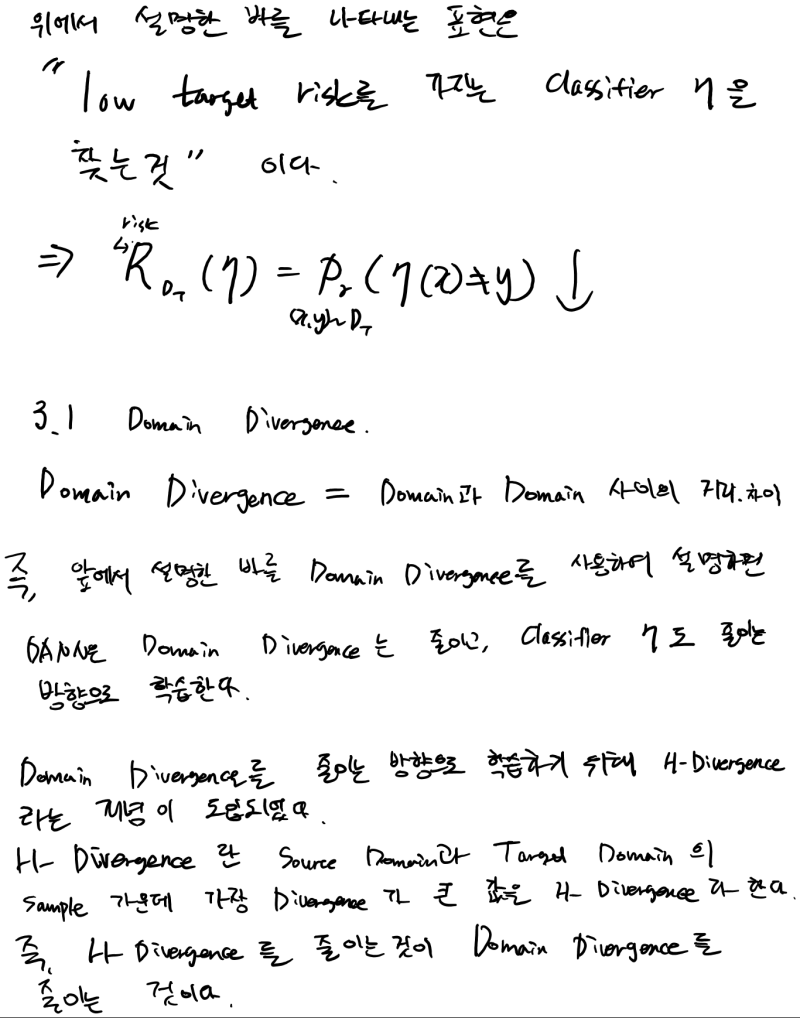 위에서 설명한 바를 나타내는 표현은
"low target risk를 가지는 classifier η을
찾는것" 이다.
risk
⇒ ↳R_{D_T} (η) = Pr (η(x)≠y) ↓
(x,y)~D_T
3.1 Domain Divergence.
Domain Divergence = Domain과 Domain 사이의 거리.차이
즉, 앞에서 설명한 바를 Domain Divergence를 사용하여 설명하면
DANN은 Domain Divergence는 줄이고, classifier η도 줄이는
방향으로 학습한다.
Domain Divergence를 줄이는 방향으로 학습하기 위해 H-Divergence
라는 개념이 도입되었다.
H-Divergence란 Source Domain과 Target Domain의
sample 가운데 가장 Divergence가 큰 값을 H-Divergence라 한다.
즉, H-Divergence를 줄이는것이 Domain Divergence를
줄이는 것이다.